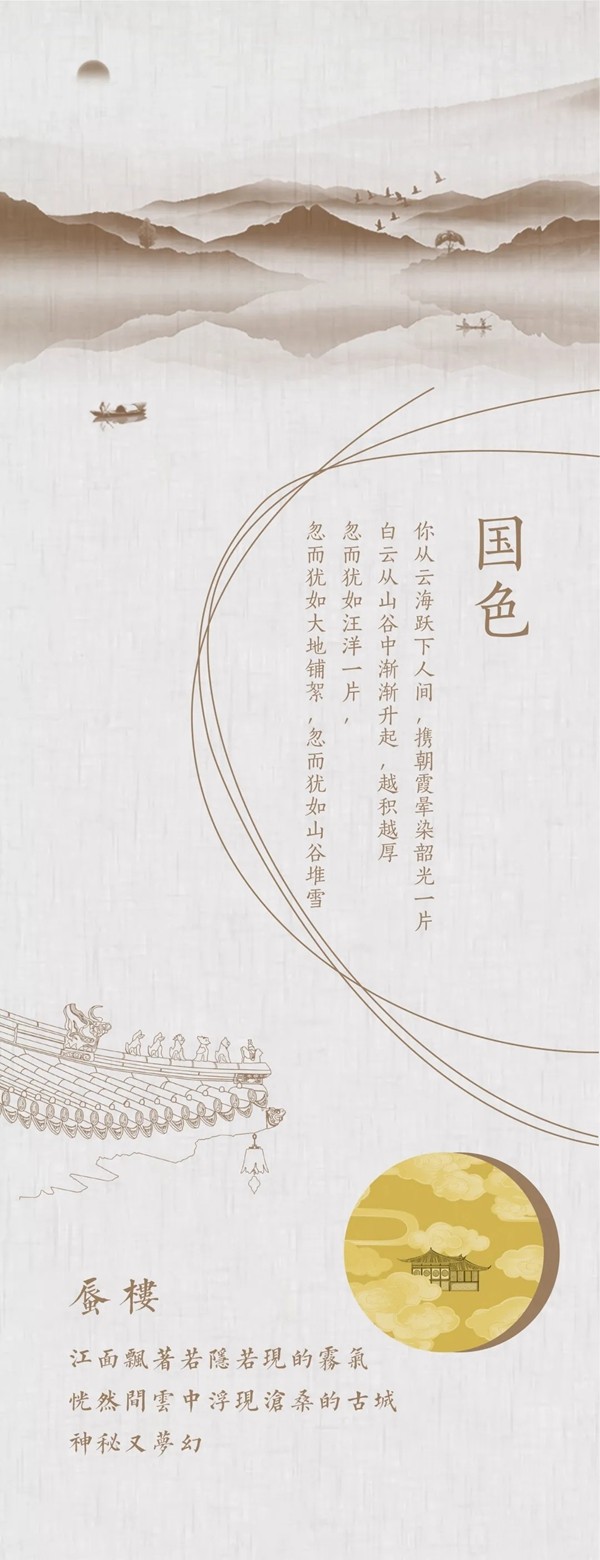 国色
你从云海跃下人间,携朝霞晕染韶光一片
白云从山谷中渐渐升起,越积越厚
忽而犹如汪洋一片,
忽而犹如大地铺絮,忽而犹如山谷堆雪
蜃樓
江面飄著若隱若現的霧氣
恍然間雲中浮現滄桑的古城
神秘又夢幻